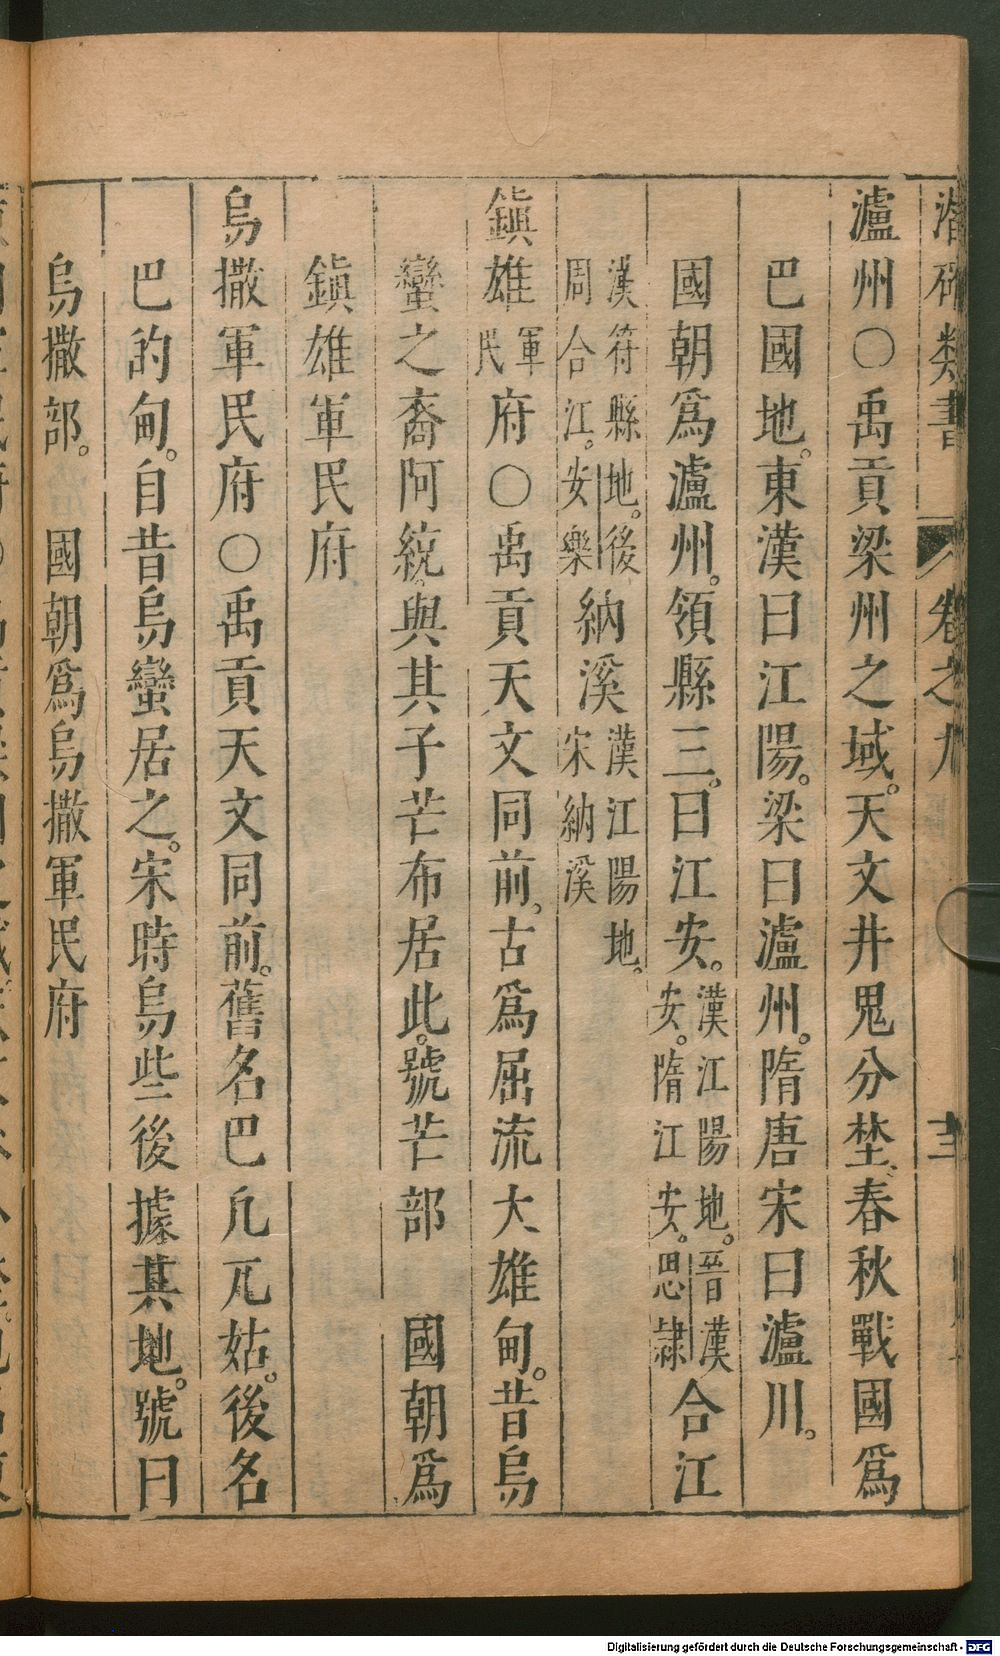 潛確類書 卷之九 十二
瀘州○禹貢梁州之域。天文井鬼分埜。春秋戰國爲
巴國地。東漢曰江陽。梁曰瀘州。隋唐宋曰瀘川。
國朝爲瀘州。領縣三。曰江安。漢江陽地。晉漢安。隋江安。思隷合江
漢符縣地。後周合江。安樂納溪漢江陽地。宋納溪
鎭雄軍民府○禹貢天文同前。古爲屈流大雄甸。昔烏
蠻之裔阿統。與其子芒布居此。號芒部 國朝爲
鎭雄軍民府
烏撒軍民府○禹貢天文同前。舊名巴凡兀姑。後名
巴的甸。自昔烏蠻居之。宋時烏些後據其地。號曰
烏撒部。 國朝爲烏撒軍民府
Digitalisierung gefördert durch die Deutsche Forschungsgemeinschaft - DFG